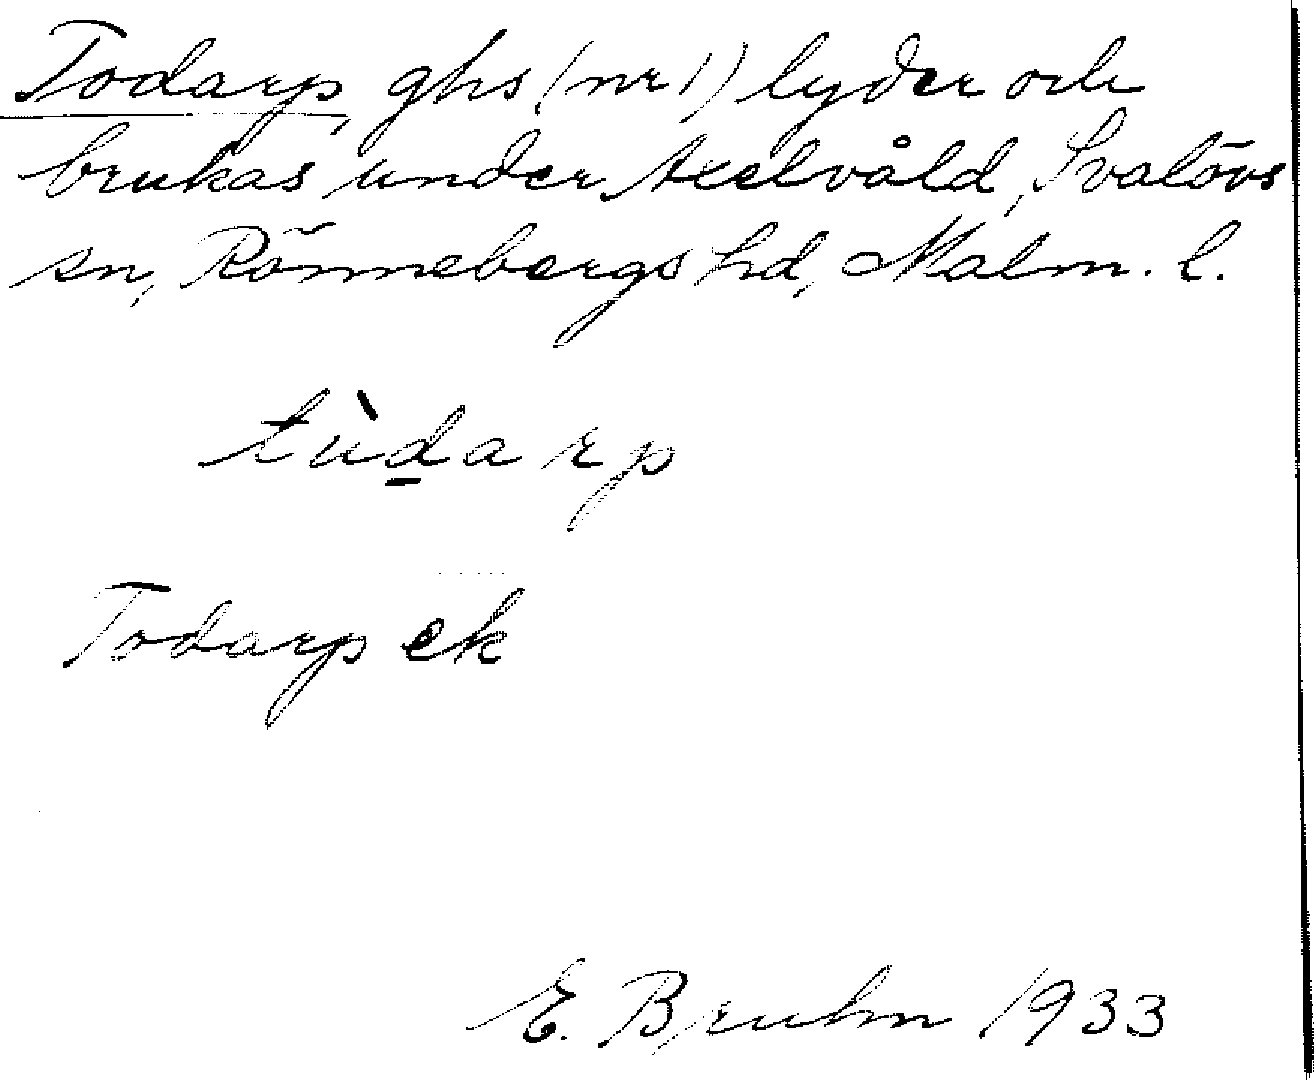 Todarp, ghs (nr 1) lyder och
brukas under Axelvåld, Svalövs
sn, Rönnebergs hd, Malm. l.
tùdarp
Todarp ek
E. Bruhn 1933